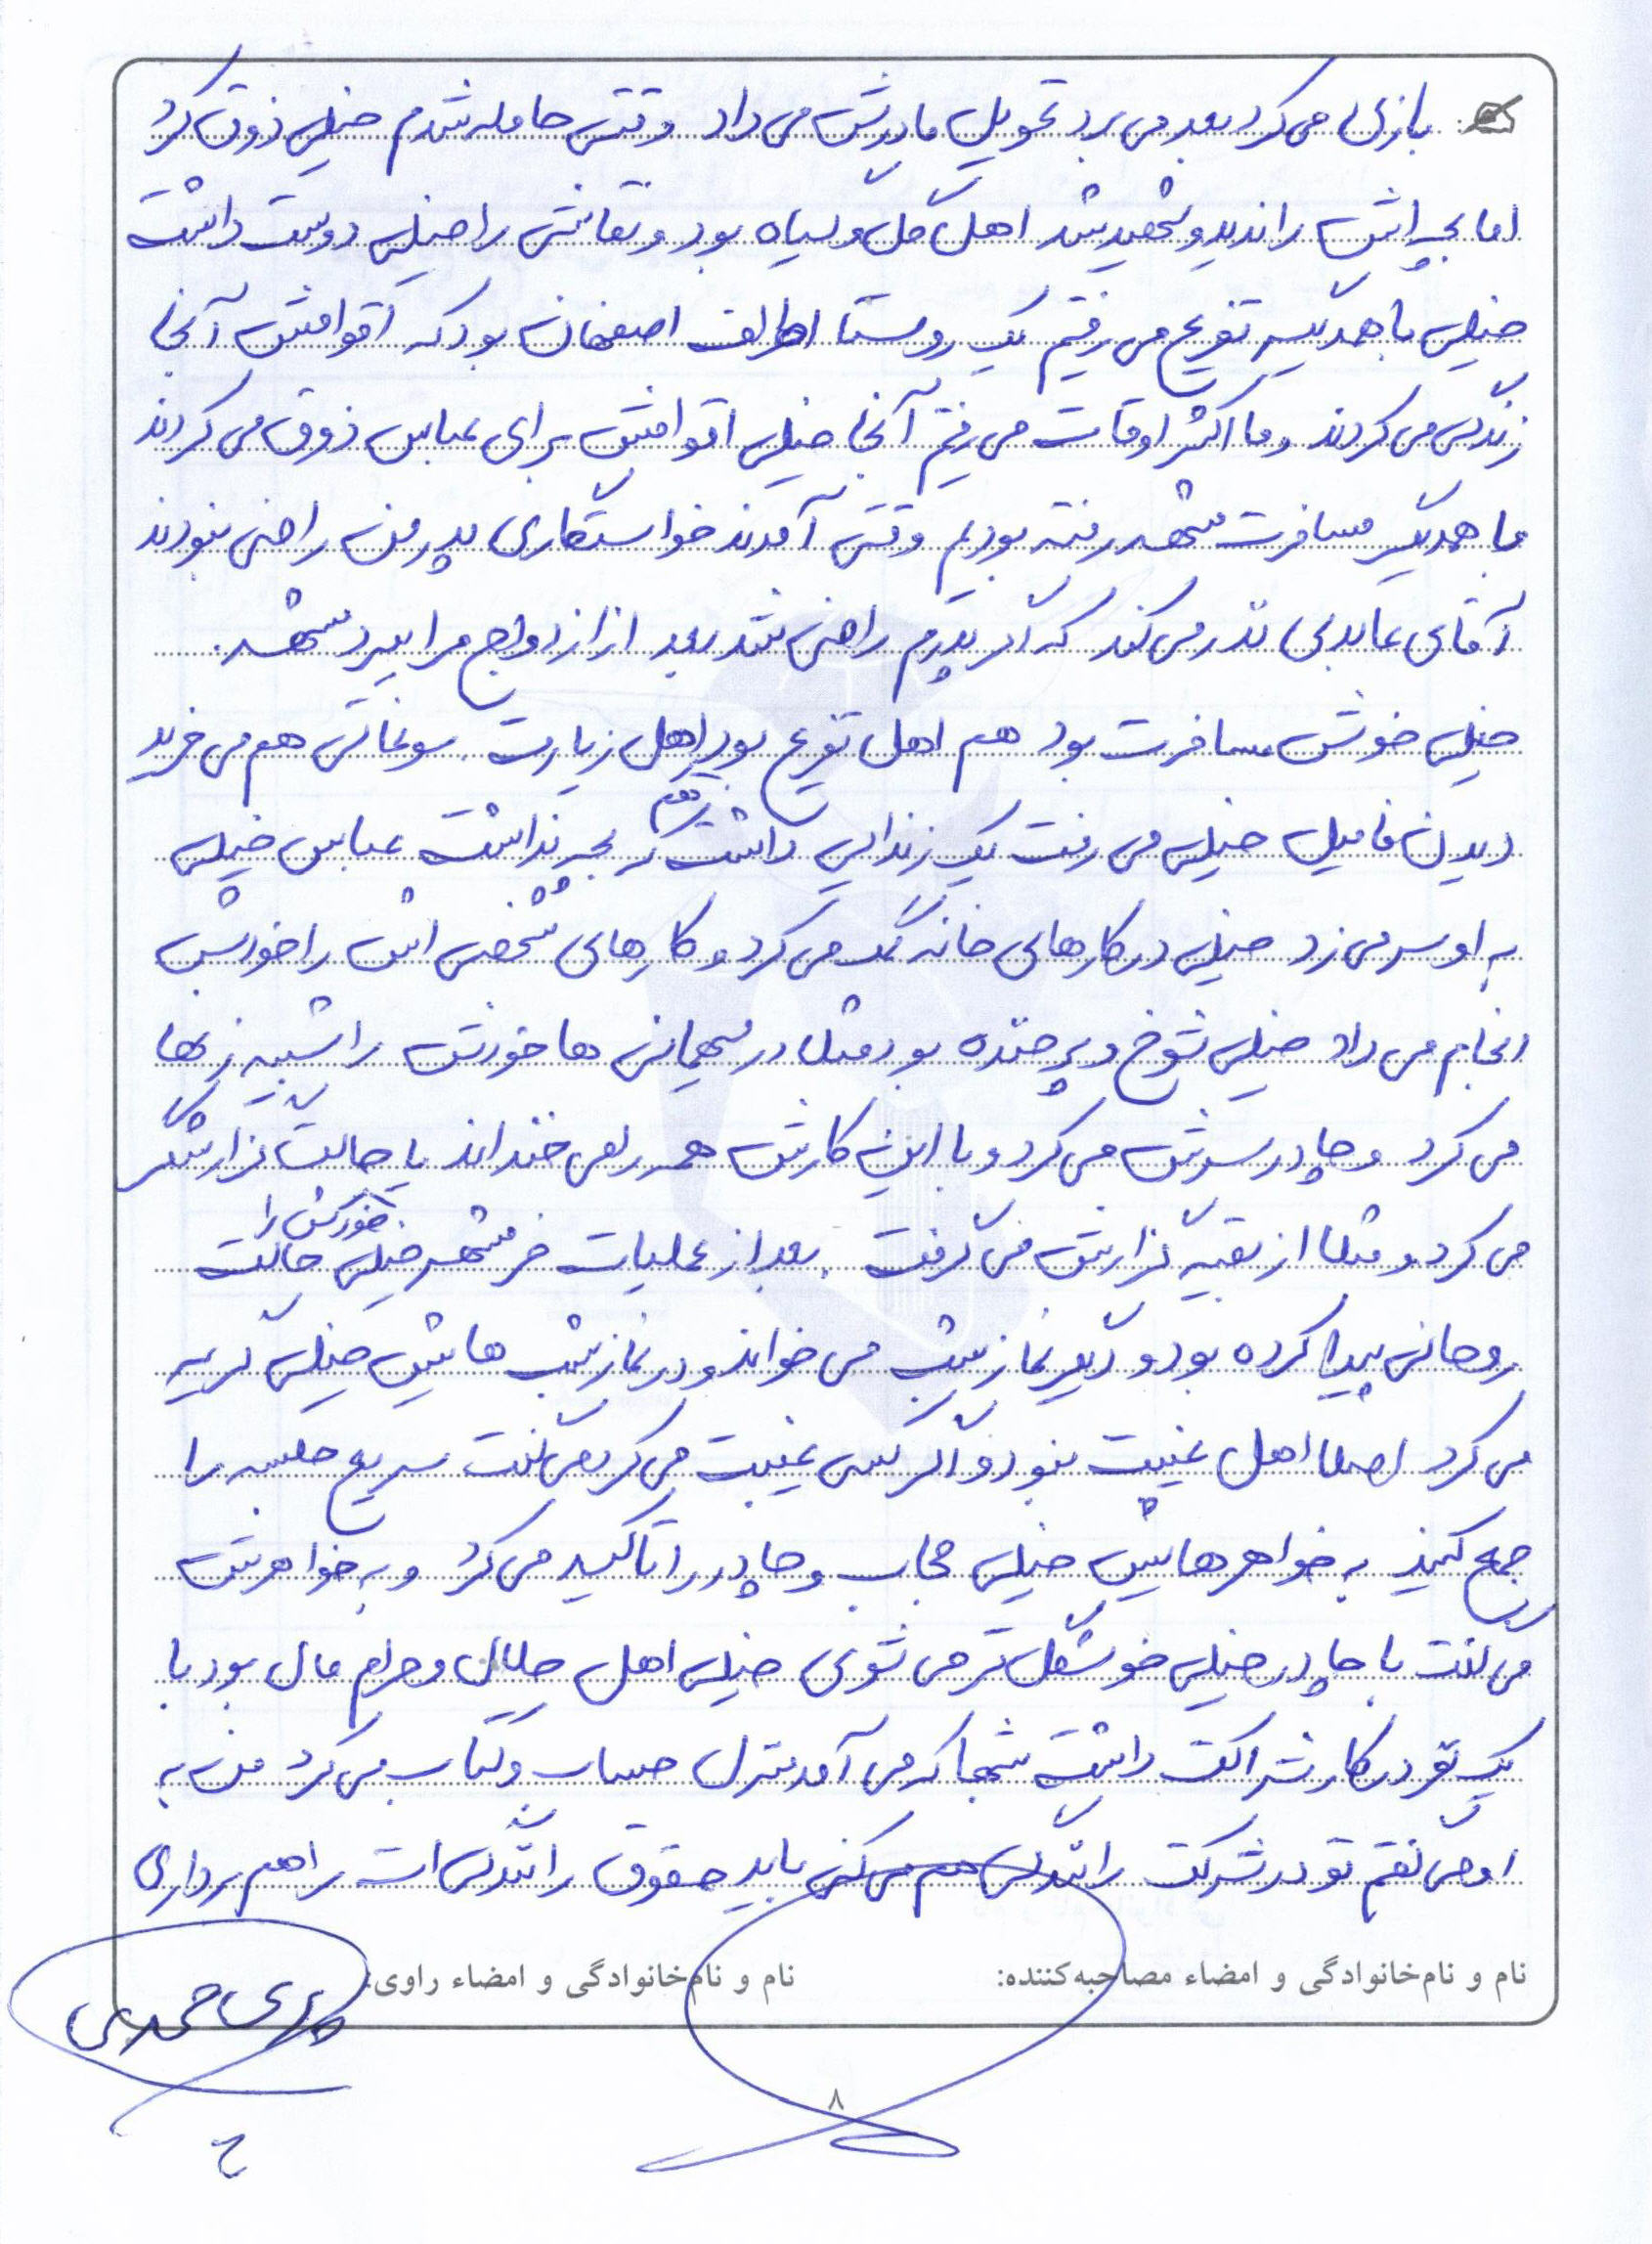 بازی می کرد بعد می برد تحویل مادرش می داد وقتی حامله شدم خیلی ذوق کرد
اما بچه اش را ندید و شهید شد اهل و سیاه بود و نقاشی را خیلی دوست داشت
خیلی با همدیگر تفریح می رفتیم یک روستا اطراف اصفهان بود که اقوامش آنجا
زندگی می کردند و ما اکثر اوقات می رفتیم آنجا خیلی اقوامش برای عباس ذوق می کردند
با همدیگر مسافرت مشهد رفته بودیم وقتی آمدند خواستگاری پدر من راضی نبودند
آقای عابدی نذر می کند که اگر پدرم راضی شد بعد از ازدواج مرا ببرد مشهد.
خیلی خوش مسافرت بود هم اهل تفریح بود اهل زیارت. سوغاتی هم می خرید
دیدن فامیل خیلی می رفت یک زندایی داشت که بچه نداشت عباس خیلی
به او سر می زد خیلی در کارهای خانه کمک می کرد و کارهای شخصی اش را خودش
انجام می داد خیلی شوخ و پر خنده بود مثلا در میهمانی ها خودش را شبیه زنها
می کرد و چادر سرش می کرد و با این کارش همه را می خنداند یا حالت گزارشگر
می کرد و مثلا از بقیه گزارش می گرفت. بعد از عملیات خرمشهر خیلی حالت
روحانی پیدا کرده بود و دیگر نماز شب می خواند و در نماز شب هایش خیلی گریه
می کرد اصلا اهل غیبت نبود و اگر کسی غیبت می کرد می گفت سریع جلسه را
جمع کنید به خواهرهایش خیلی حجاب و چادر را تاکید می کرد و به خواهرش
می گفت با چادر خیلی خوشگل تر می شوی خیلی اهل حلال و حرام مال بود با
یک نفر در کار شراکت داشت شبها که می آمد منزل حساب و کتاب می کرد من به
او می گفتم تو در شرکت رانندگی هم می کنی باید حقوق رانندگی ات را هم برداری
نام و نام‌خانوادگی و امضاء مصاحبه‌کننده:
نام و نام‌خانوادگی و امضاء راوی:
۸